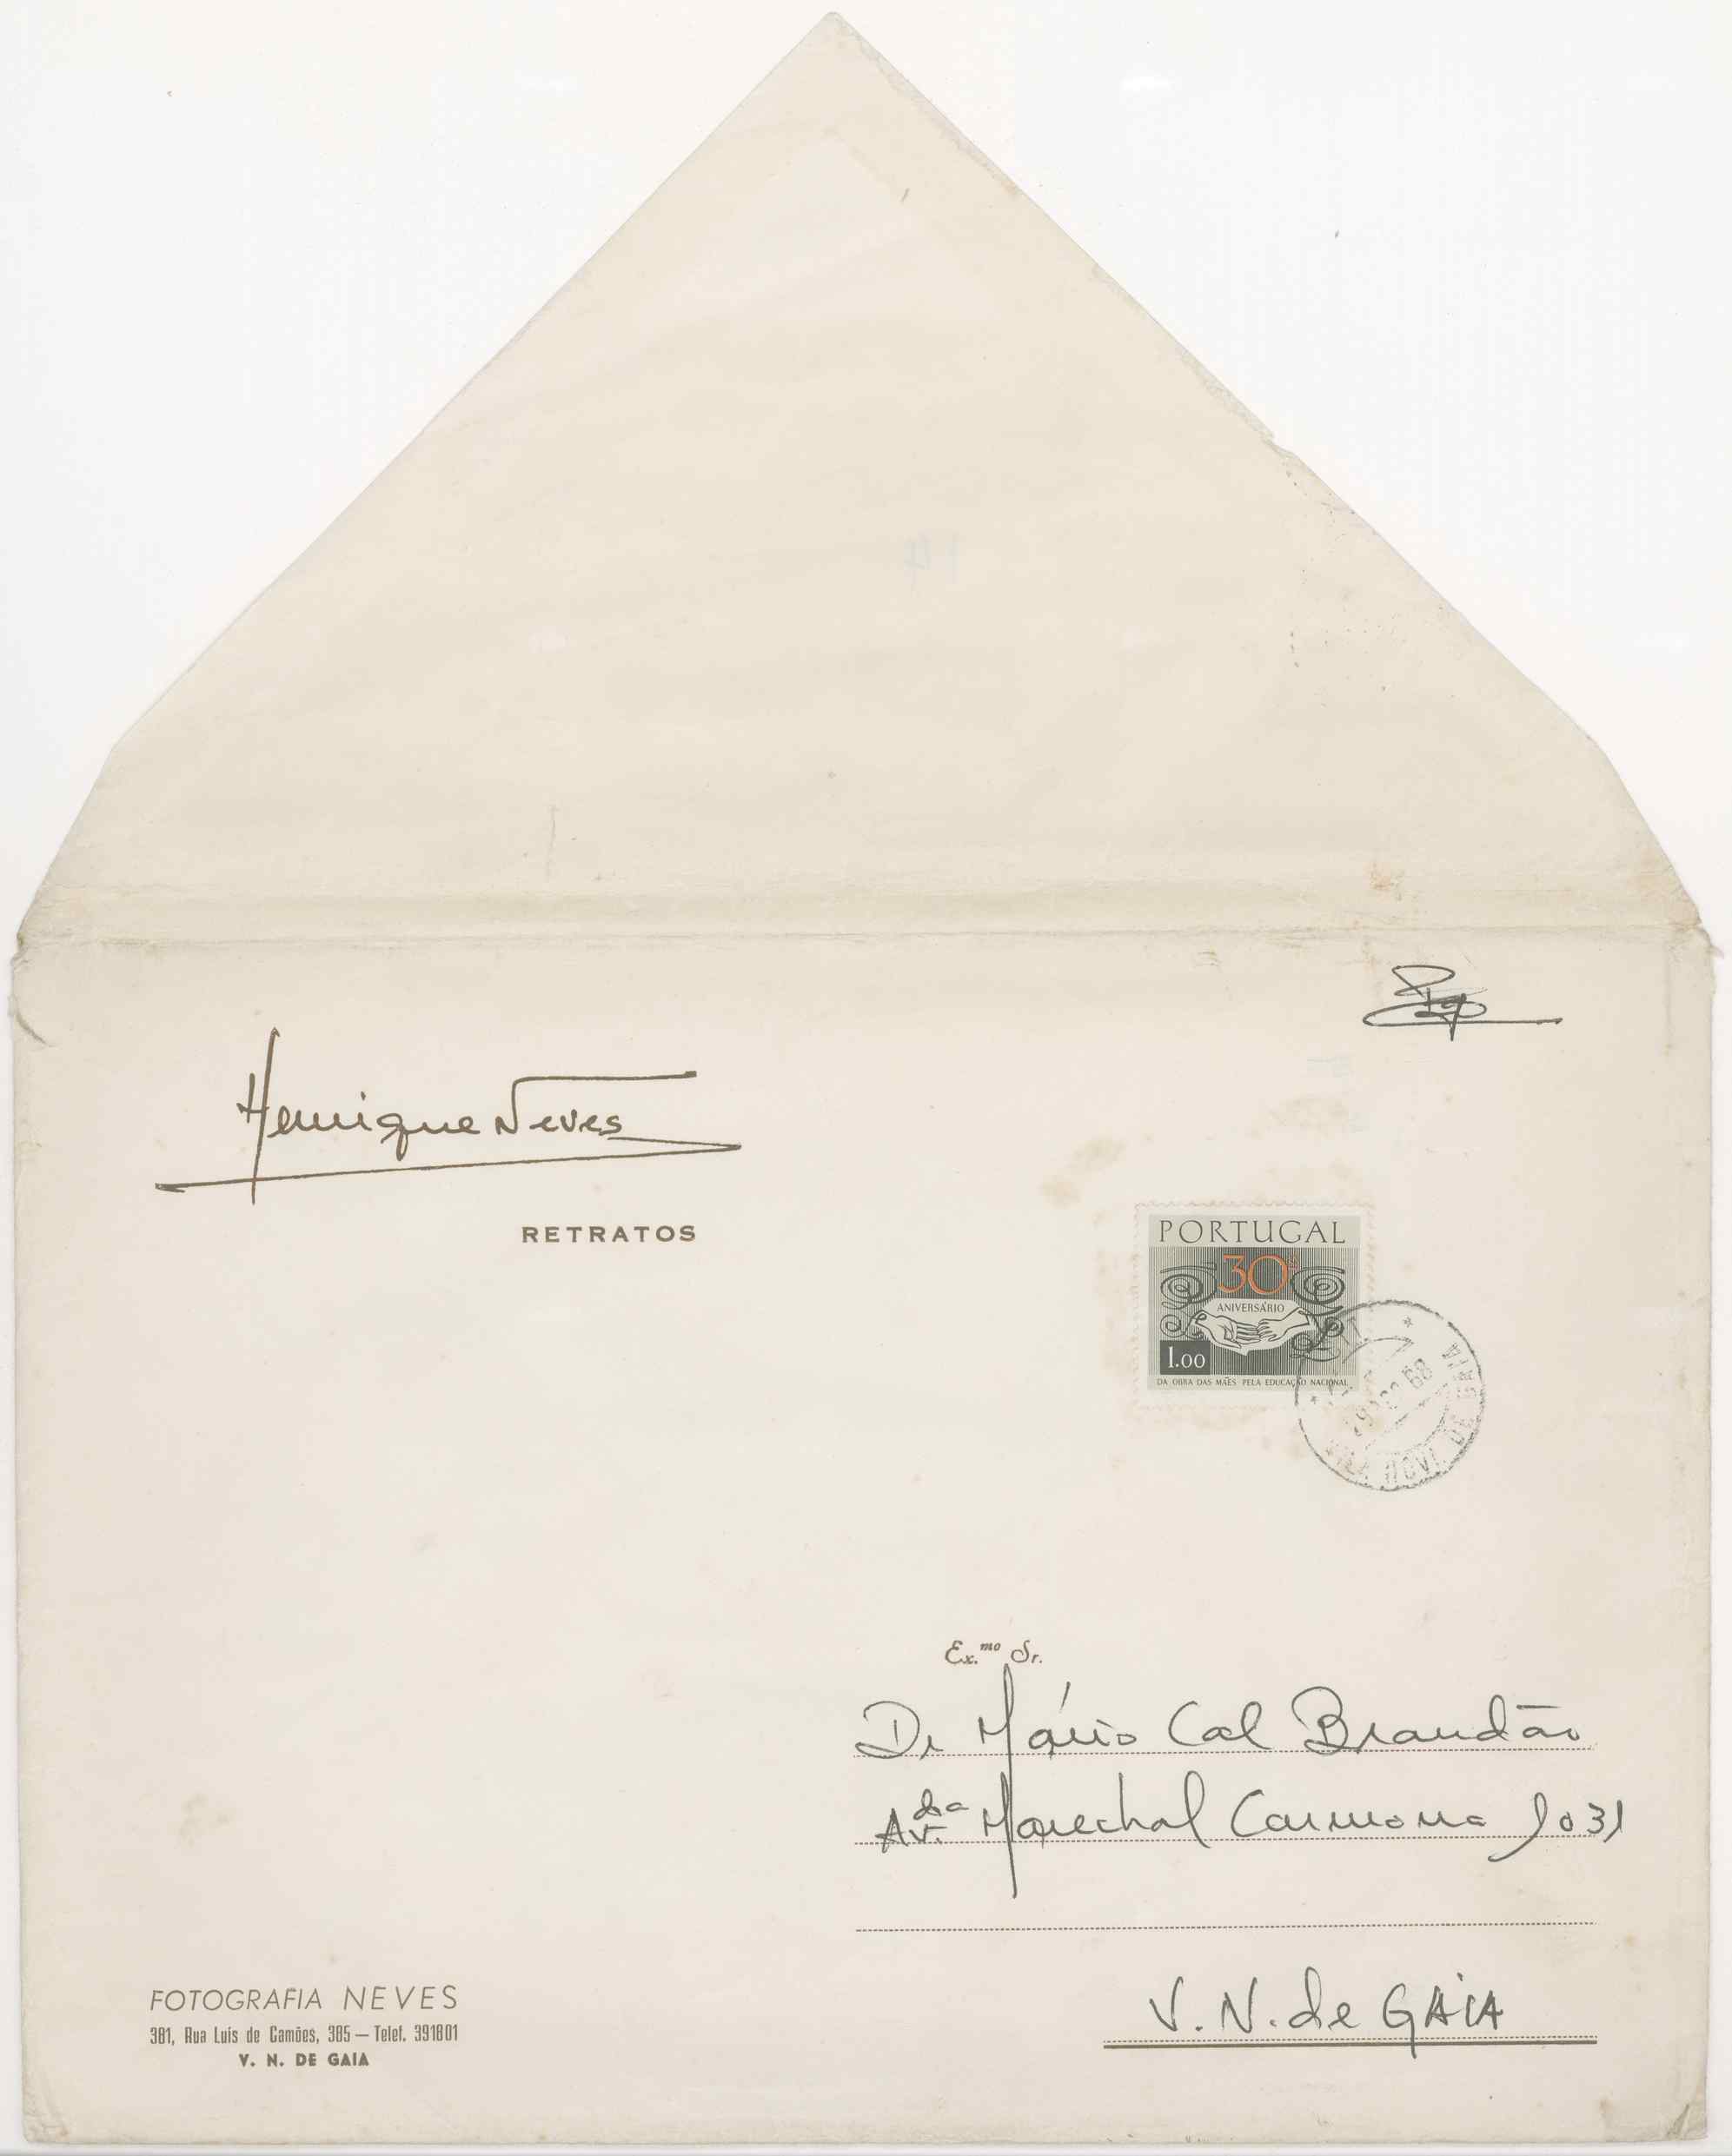 Henrique Neves
RETRATOS
PORTUGAL
30º
ANIVERSÁRIO
1.00
DA OBRA DAS MÃES PELA EDUCAÇÃO NACIONAL
VILA NOVA DE GAIA
68
Ex.mo Sr.
Dr Mário Cal Brandão
Av.da Marechal Carmona 1031
V. N. de GAIA
FOTOGRAFIA NEVES
381, Rua Luís de Camões, 385 — Telef. 391801
V. N. DE GAIA